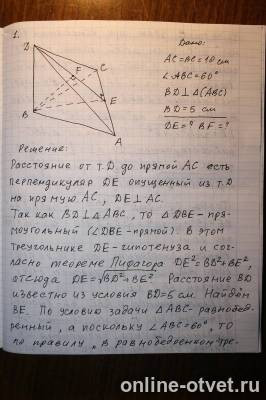 1.
Дано:
AC=BC=10 см
∠ABC=60°
BD⊥Δ(ABC)
BD=5 см
DE=? BF=?
D
F
C
B
E
A
Решение:
Расстояние от т.D до прямой AC есть
перпендикуляр DE опущенный из т.D
на прямую AC, DE⊥AC.
Так как BD⊥ΔABC, то ΔDBE-пря-
моугольный (∠DBE-прямой). В этом
треугольнике DE-гипотенуза и сог-
ласно теореме Пифагора DE²=BD²+BE²,
отсюда DE=√BD²+BE². Расстояние BD
известно из условия BD=5 см. Найдём
BE. По условию задачи ΔABC-равнобед-
ренный, а поскольку ∠ABC=60°, то
по правилу „в равнобедренном тре-
online-otvet.ru